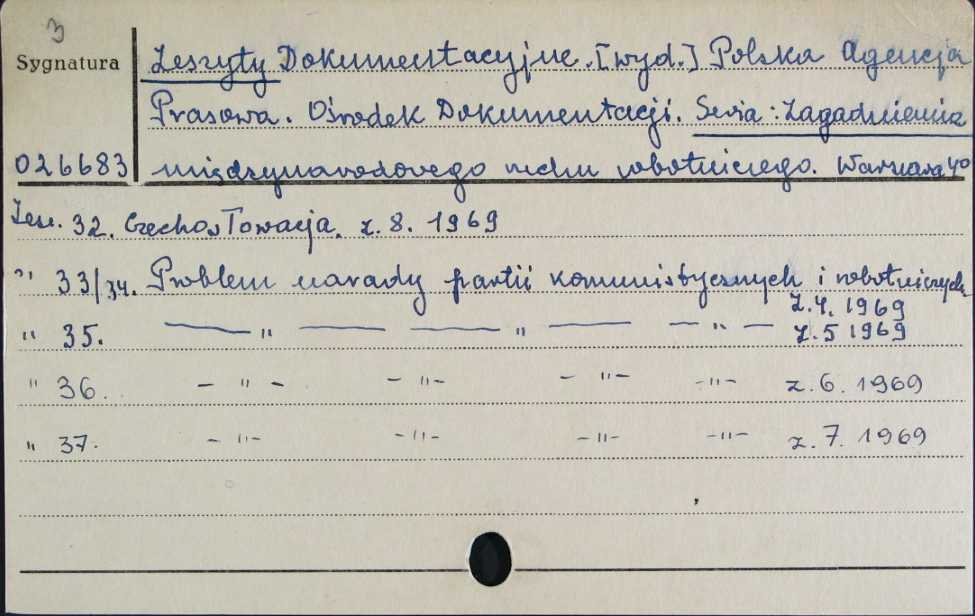 3
Sygnatura
Zeszyty Dokumentacyjne. [wyd.] Polska Agencja
Prasowa. Ośrodek Dokumentacji. Seria: Zagadnienia
026683 międzynarodowego ruchu robotniczego. Warszawa 40
Zesz. 32. Czechosłowacja. z. 8. 1969
" 33/34. Problem narady partii komunistycznych i robotniczych
z. 4. 1969
" 35. — " — — " — — " — z. 5 1969
" 36. — " — — " — — " — — " — z. 6. 1969
" 37. — " — — " — — " — — " — z. 7. 1969